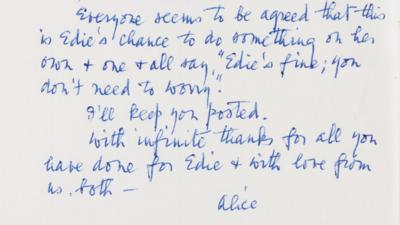 Everyone seems to be agreed that this
is Edie's chance to do something on her
own & one & all say, "Edie's fine; you
don't need to worry".
I'll keep you posted.
With infinite thanks for all you
have done for Edie & with love from
us both —
Alice